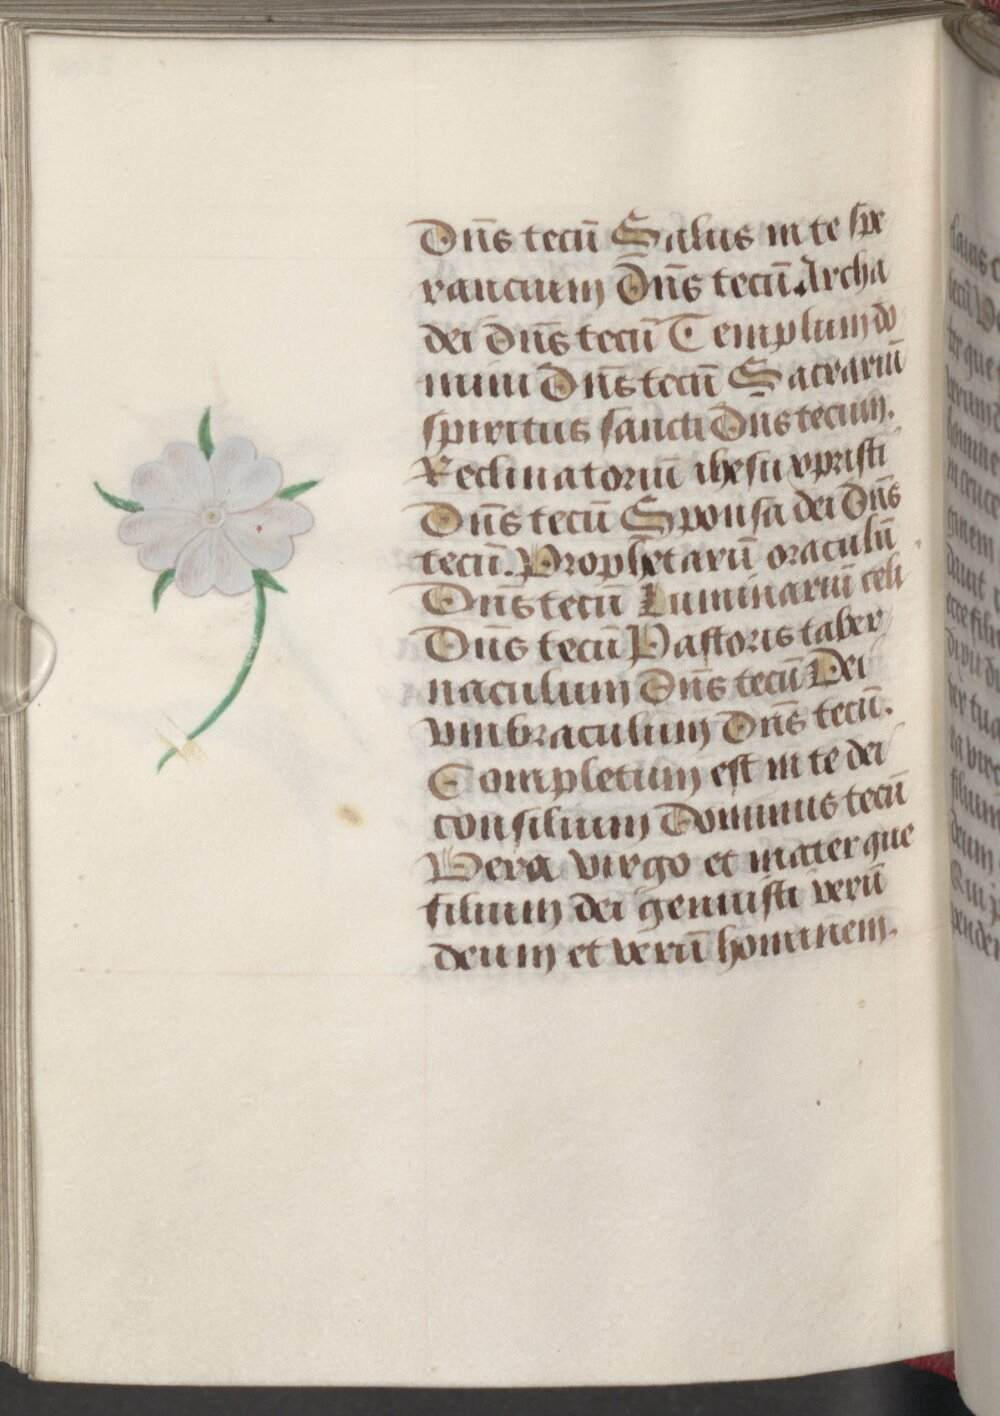 Dn̄s tecū Salus in te spe
rancium Dn̄s tecū. Archa
dei Dn̄s tecū Templum do
mini Dn̄s tecū Sacrariū
spiritus sancti Dn̄s tecum.
Reclinatoriū ihesu xpristi
Dn̄s tecū Sponsa dei Dn̄s
tecū. Prophetarū oraculū
Dn̄s tecū Luminariū celi
Dn̄s tecū Pastoris taber
naculum Dn̄s tecū Dei
vmbraculum Dn̄s tecū.
Completum est in te dei
consilium Dominus tecū
Vera virgo et mater que
filium dei genuisti verū
deum et verū hominem.